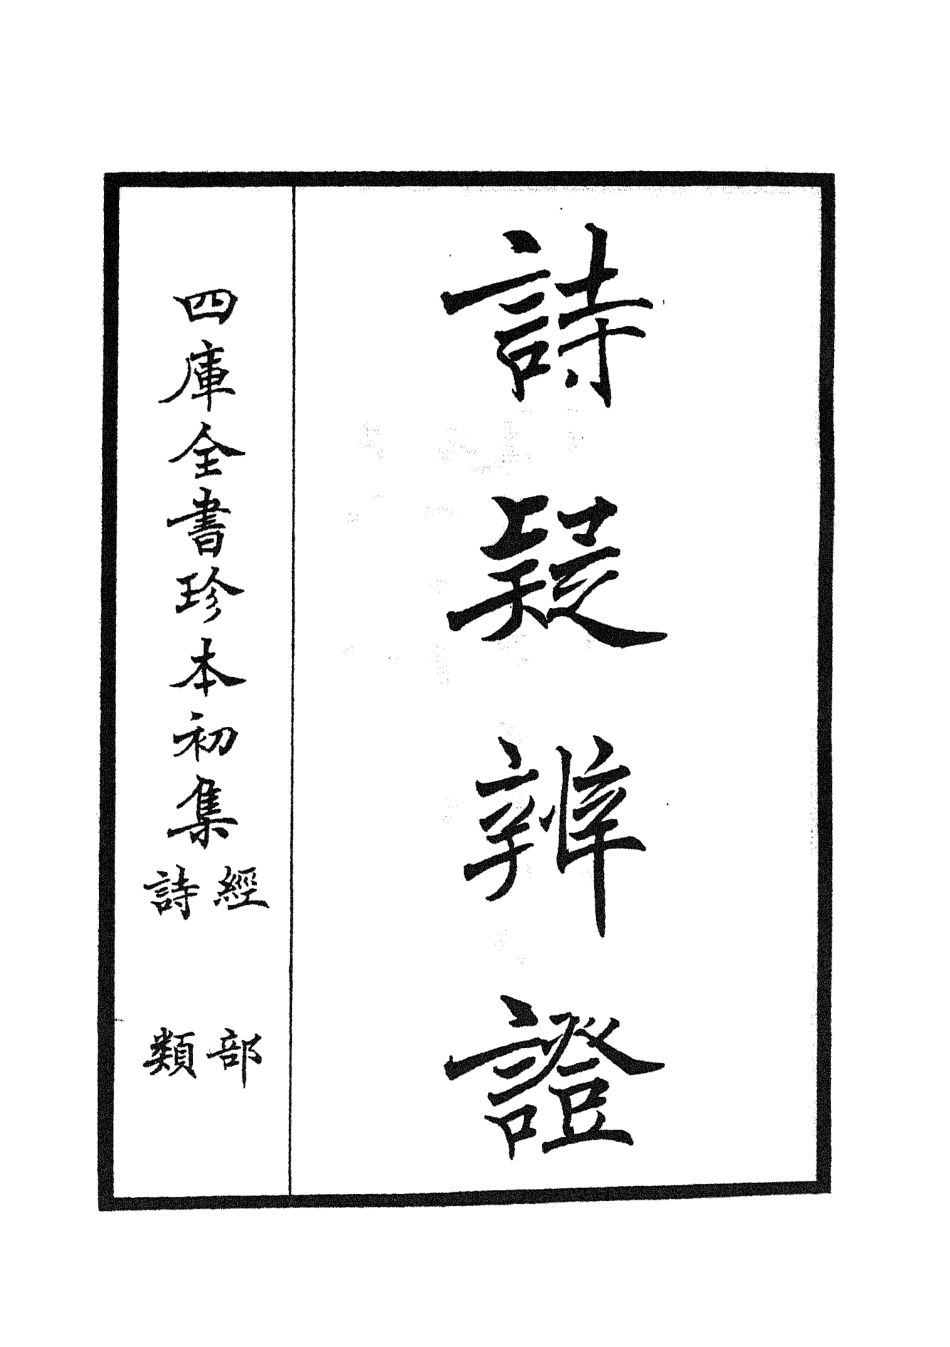 詩疑辨證
四庫全書珍本初集
經部
詩類